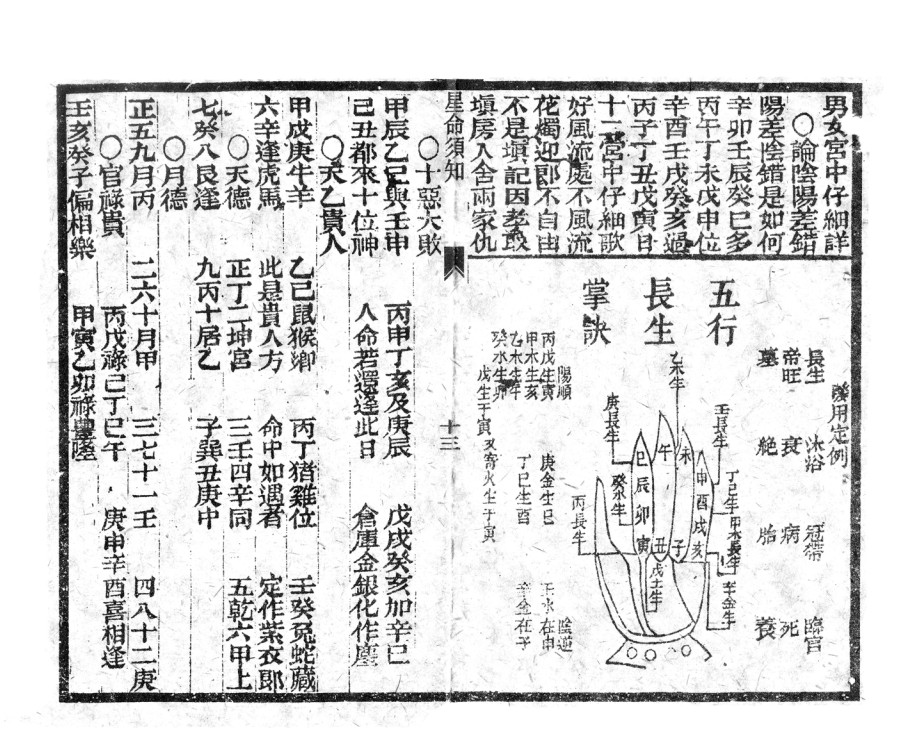 男女宮中仔細詳
○論陰陽差錯
陽差陰錯是如何
辛卯壬辰癸巳多
丙午丁未戊申位
辛酉壬戌癸亥過
丙子丁丑戊寅日
十二宮中仔細歌
好風流處不風流
花燭迎郎不自由
不是塡記因孝
塡房入舍兩家仇
五行
長生
掌訣
發用定例
長生 沐浴 冠帶 臨官
帝旺 衰 病 死
墓 絶 胎 養
陽順 陰逆
丙戊生寅 庚金生巳 壬水在申
甲木生亥
乙木生午 丁巳生酉 辛金在子
癸水生卯
戊生于寅 又寄火生于寅
乙未生
庚長生
壬長生
癸水生
丁己生
丙長生
甲木長生
辛金生
戊土生
巳 午 未 申
辰 酉
卯 戌
寅 丑 子 亥
星命須知
十三
○十惡大敗
甲辰乙巳與壬申 丙申丁亥及庚辰 戊戌癸亥加辛巳
己丑都來十位神 人命若還逢此日 倉庫金銀化作塵
○天乙貴人
甲戊庚牛羊 乙己鼠猴鄉 丙丁猪雞位 壬癸兔蛇藏
六辛逢虎馬 此是貴人方 命中如遇者 定作紫衣郎
○天德
正丁二坤宮 三壬四辛同 五乾六甲上
七癸八艮逢 九丙十居乙 子巽丑庚中
○月德
正五九月丙 二六十月甲 三七十一壬 四八十二庚
○官祿貴
丙戊祿巳丁巳午 庚申辛酉喜相逢
壬亥癸子偏相樂 甲寅乙卯祿豊隆